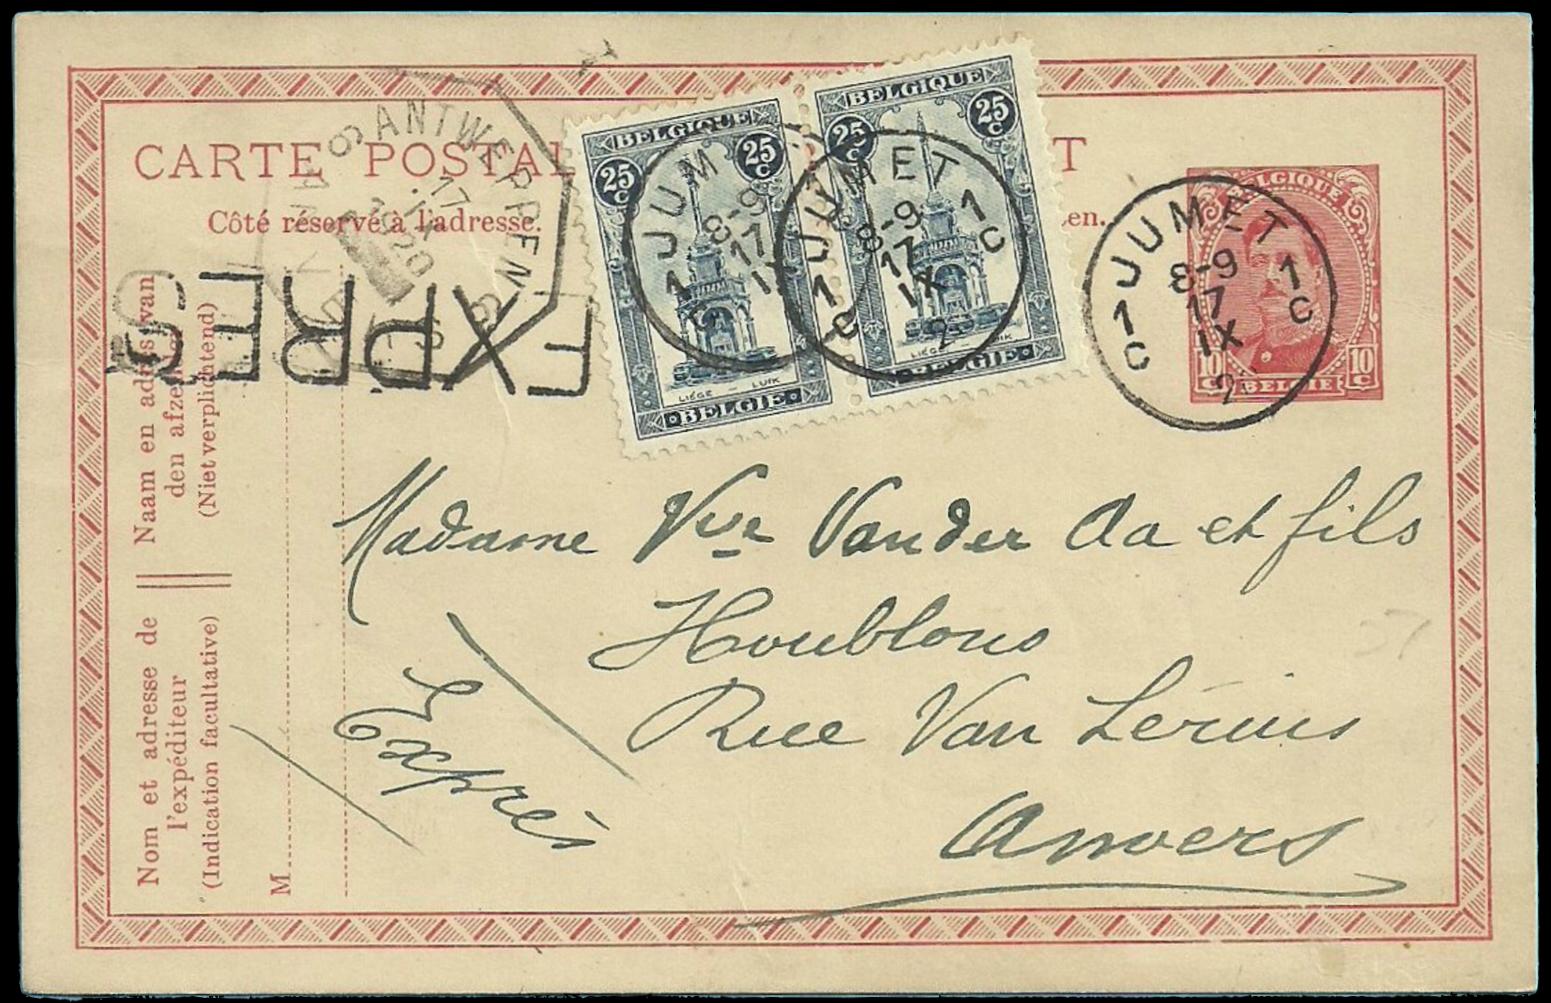 CARTE POSTAL
T
Côté réservé à l'adresse.
en.
ANTWERPEN 6
17
1920
EXPRES
BELGIQUE
25 C
25 C
LIÉGE — LUIK
BELGIE
BELGIQUE
25 C
25 C
LIÉGE — LUIK
BELGIE
JUM
8-9
17
1
JUMET
8-9
17
IX
2
1 C
1 C
BELGIQUE
10 C
10 C
BELGIE
JUMET
8-9
17
IX
2
1 C
1 C
Naam en adres van
den afze
(Niet verplichtend)
Nom et adresse de
l'expéditeur
(Indication facultative)
M
Madame Vve Vander Aa et fils
Houblons
Rue Van Lérius
Anvers
Exprès